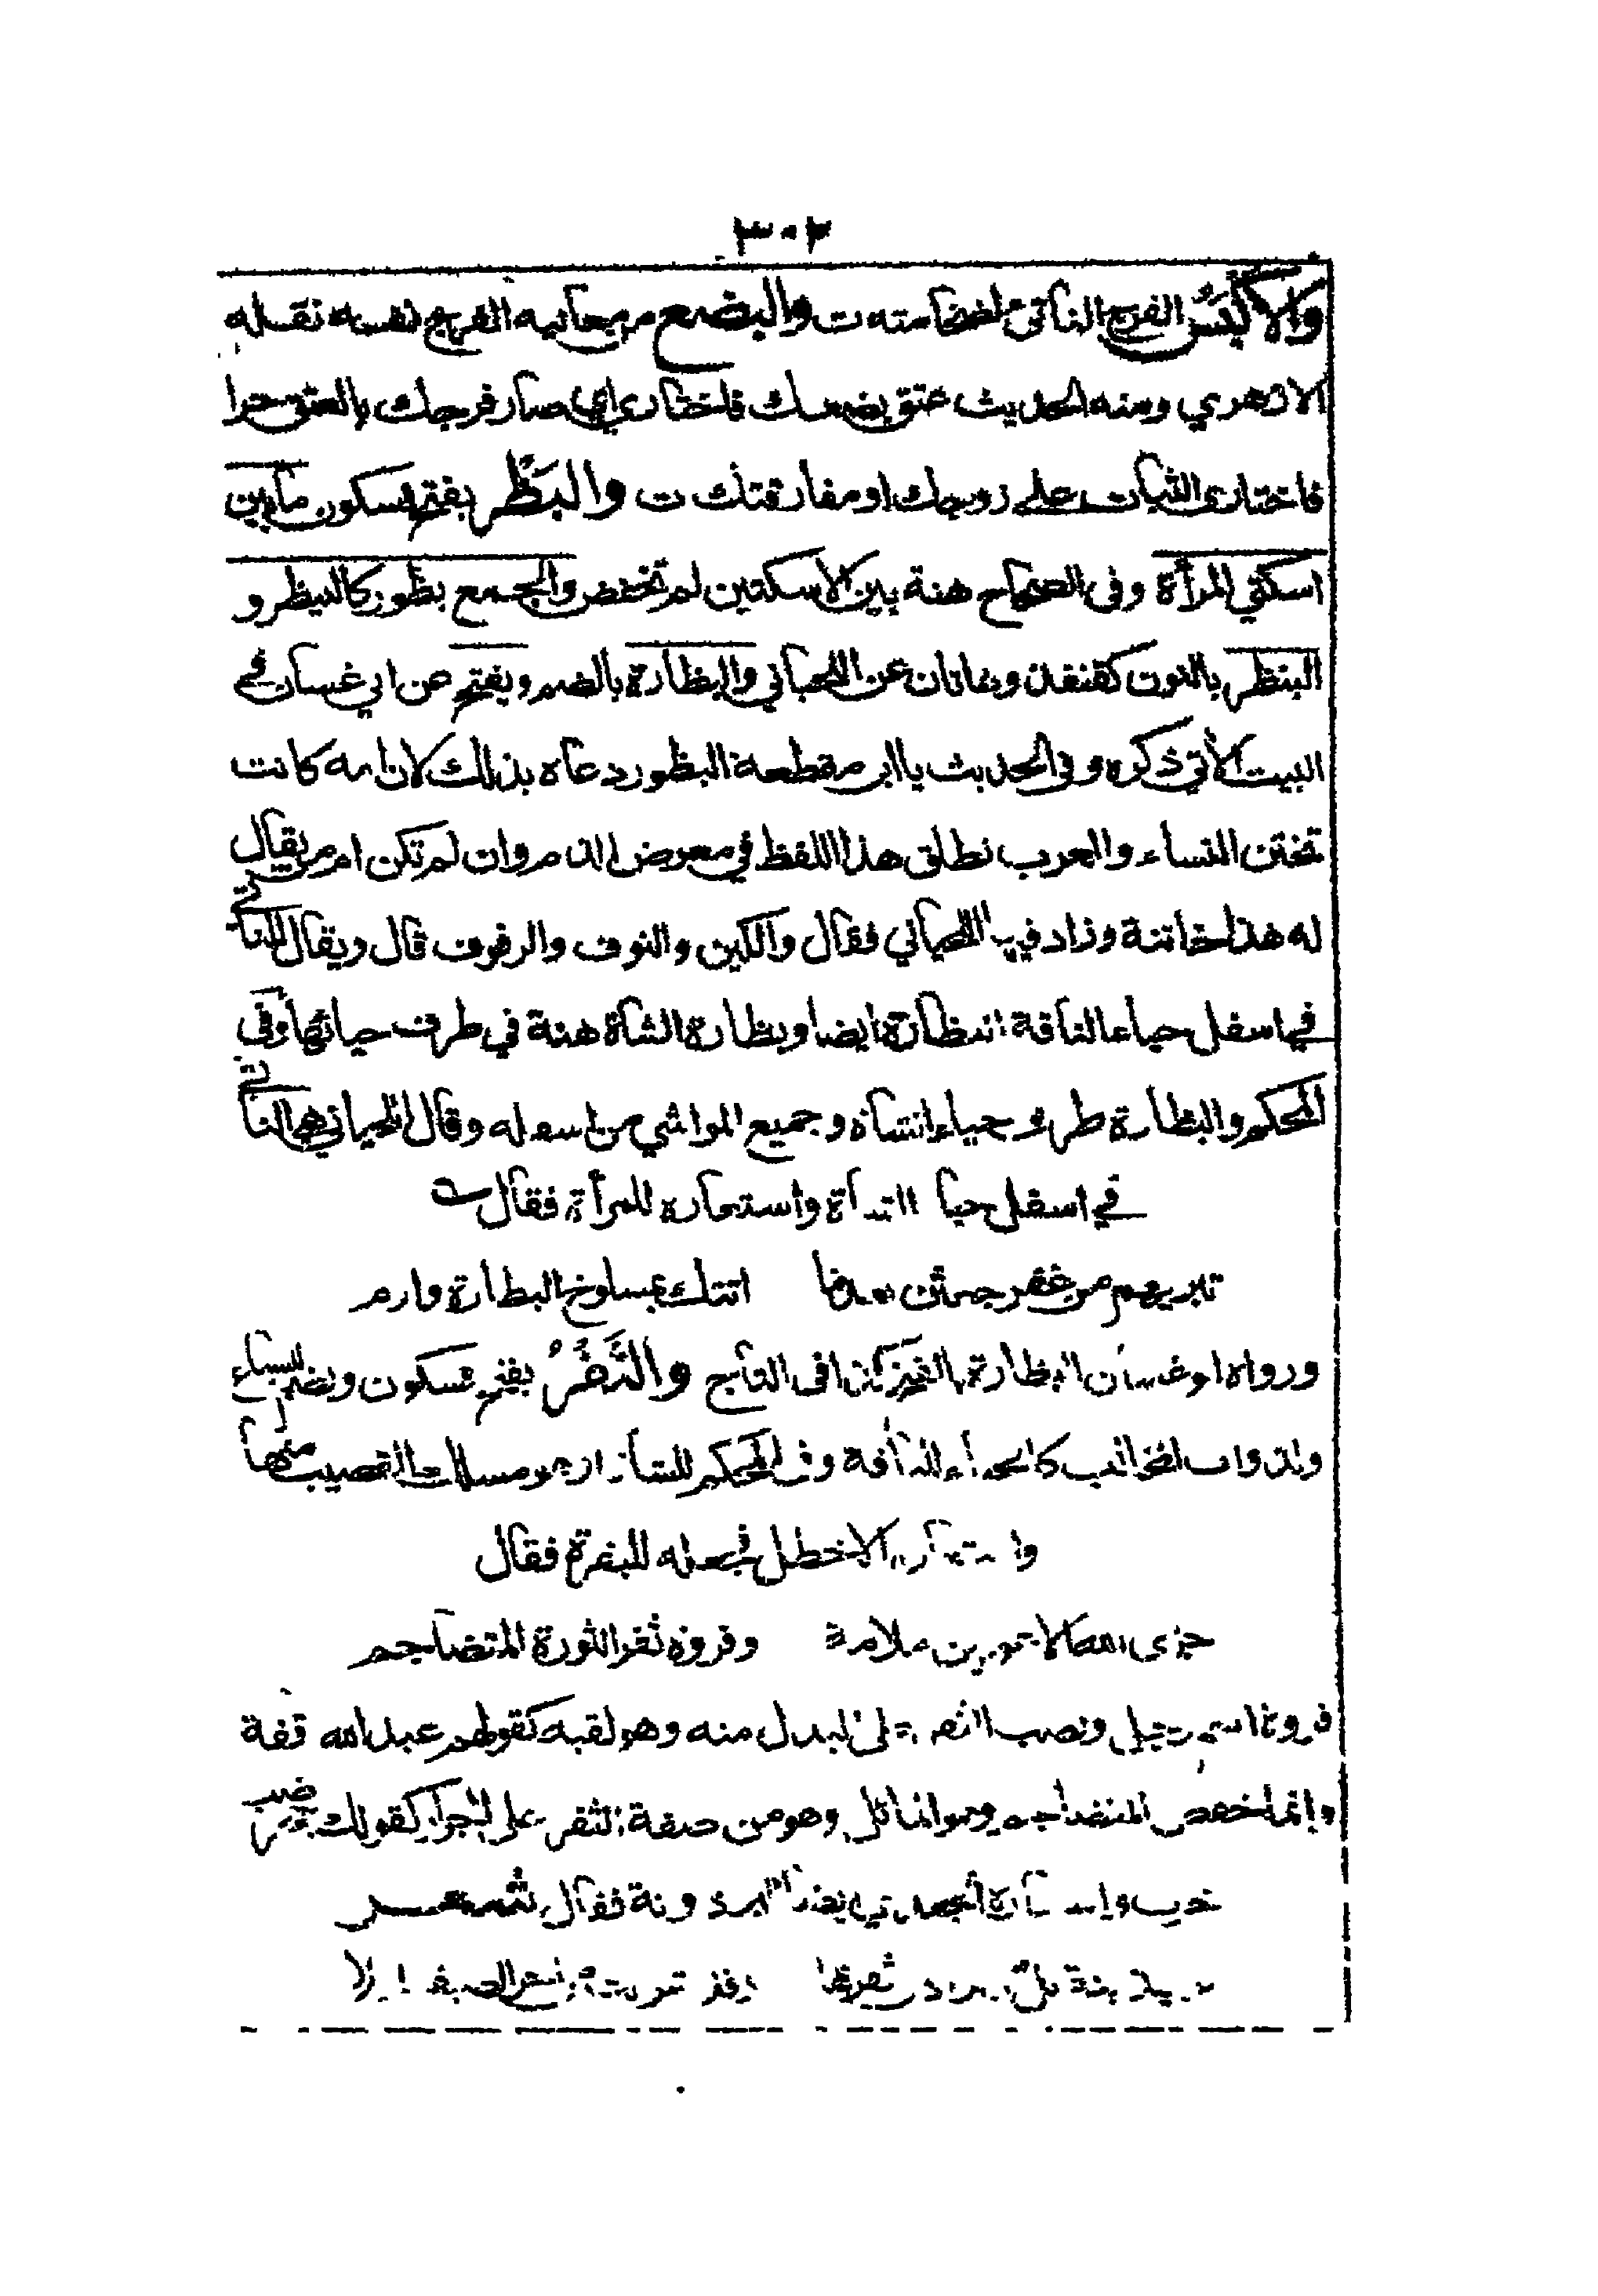 ٣٠٢
والاكبس الفرج الناتئ لضخامته ت والبضع من معانيه الفرج نفسه نقله
الازهري ومنه الحديث عتق بضعك فاختاري اي صار فرجك بالعتق حرا
فاختاري الثبات على زوجك او مفارقتك ت والبَظْر بفتح فسكون ما بين
اسكتي المرأة وفي الصحاح هنة بين الاسكتين لم تخفض والجمع بظور كالبيظر و
البنظر بالنون كقنفذ وهاتان عن اللحياني والبظارة بالضم ويفتح عن ابي غسان في
البيت الآتي ذكره وفي الحديث يا ابن مقطعة البظور دعاه بذلك لان امه كانت
تختن النساء والعرب تطلق هذا اللفظ في معرض الذم وان لم تكن ام من يقال
له هذا خاتنة وزاد فيه اللحياني فقال والكين والنوف والرفرف قال ويقال للناتئ
في اسفل حياء الناقة البظارة ايضا وبظارة الشاة هنة في طرف حيائها وفي
المحكم والبظارة طرف حياء الشاة وجميع المواشي من اسفله وقال اللحياني هي الناتئ
في اسفل حيا الشاة واستعاره للمرأة فقال
اتتك بمسلوخ البظارة وارم
ورواه ابو غسان البظارة بالفتح كذا في التاج والثَّفْرُ بفتح فسكون ويضم للسباع
ولذوات المخالب كالحياء للناقة وفي المحكم للشاة او هو مسلك القضيب منها
واستعاره الاخطل فجعله للبقرة فقال
جزى الله الاعورين ملامة وفروة ثفر الثورة المتضاجم
فروة اسم رجل ونصب الثفر على البدل منه وهو لقبه كقولهم عبد الله قفة
وانما خفض المتضاجم وهو المائل وهو من صفة الثفر على الجوار كقولك جحر ضب
خرب واستعاره الجعدي ايضا للبرذونة فقال شعر